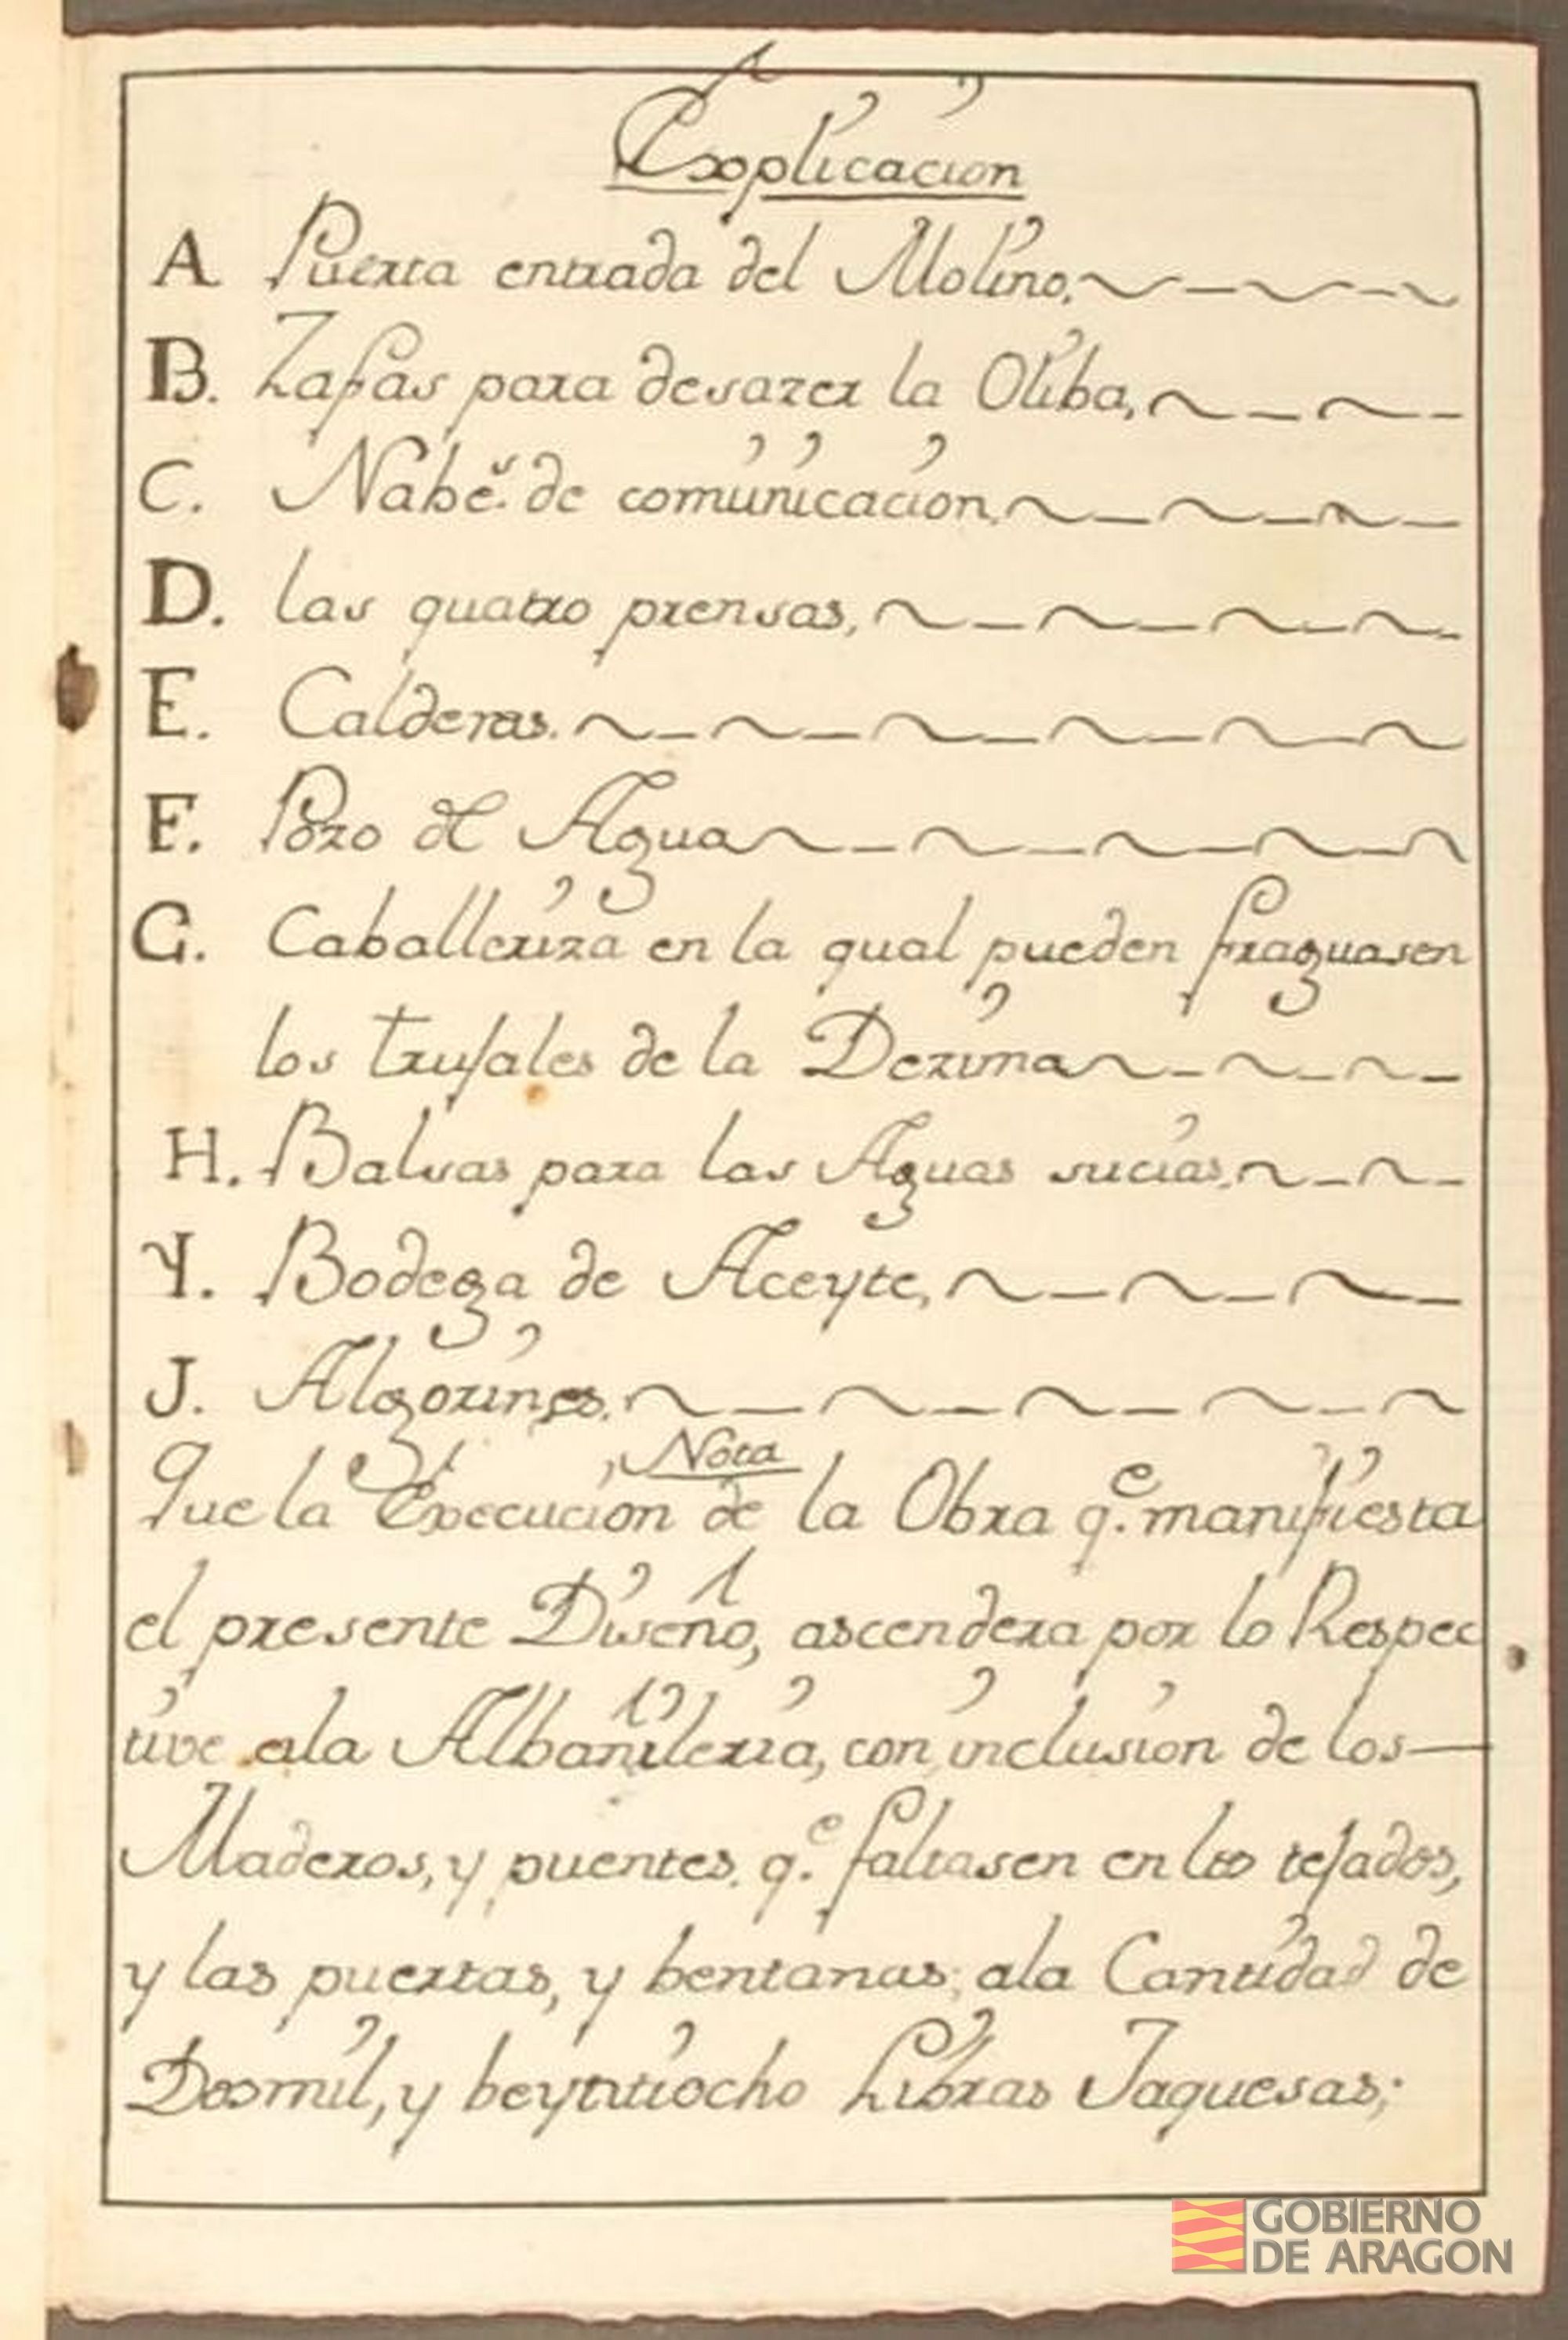 Explicacion
A Puerta entrada del Molino,
B. Zafas para desazer la Oliba,
C. Nabe.s de comunicacion,
D. las quatro prensas,
E. Calderas.
F. Pozo de Agua
G. Caballeriza en la qual pueden fraguasen
los trujales de la Dezima
H. Balsas para las Aguas sucias,
Y. Bodega de Aceyte,
J. Algorines.
Nota
Que la Execucion de la Obra q.e manifiesta
el presente Diseño, ascendera por lo Respec
tive ala Albañileria, con inclusion de los
Maderos, y puentes. q.e faltasen en los tejados,
y las puertas, y bentanas; ala Cantidad de
Dosmil, y beyntiocho Libras Jaquesas;
GOBIERNO
DE ARAGON